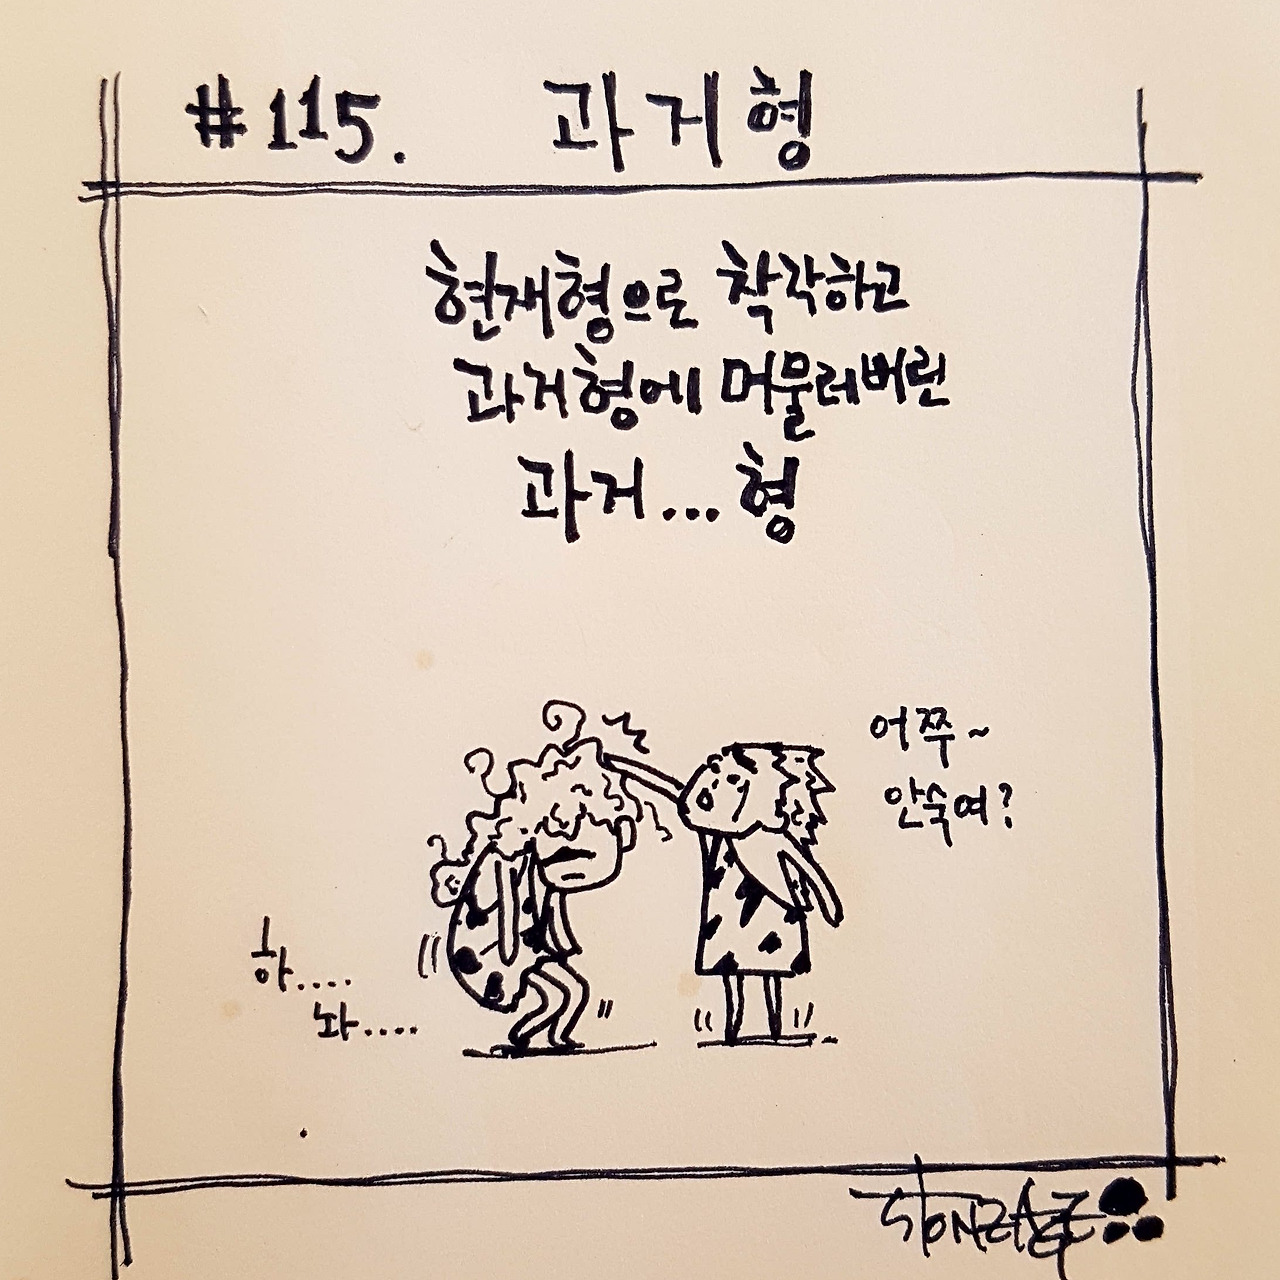 #115. 과거형
현재형으로 착각하고
과거형에 머물러버린
과거...형
어쭈~
안숙여?
하....
놔....
STONZAGE